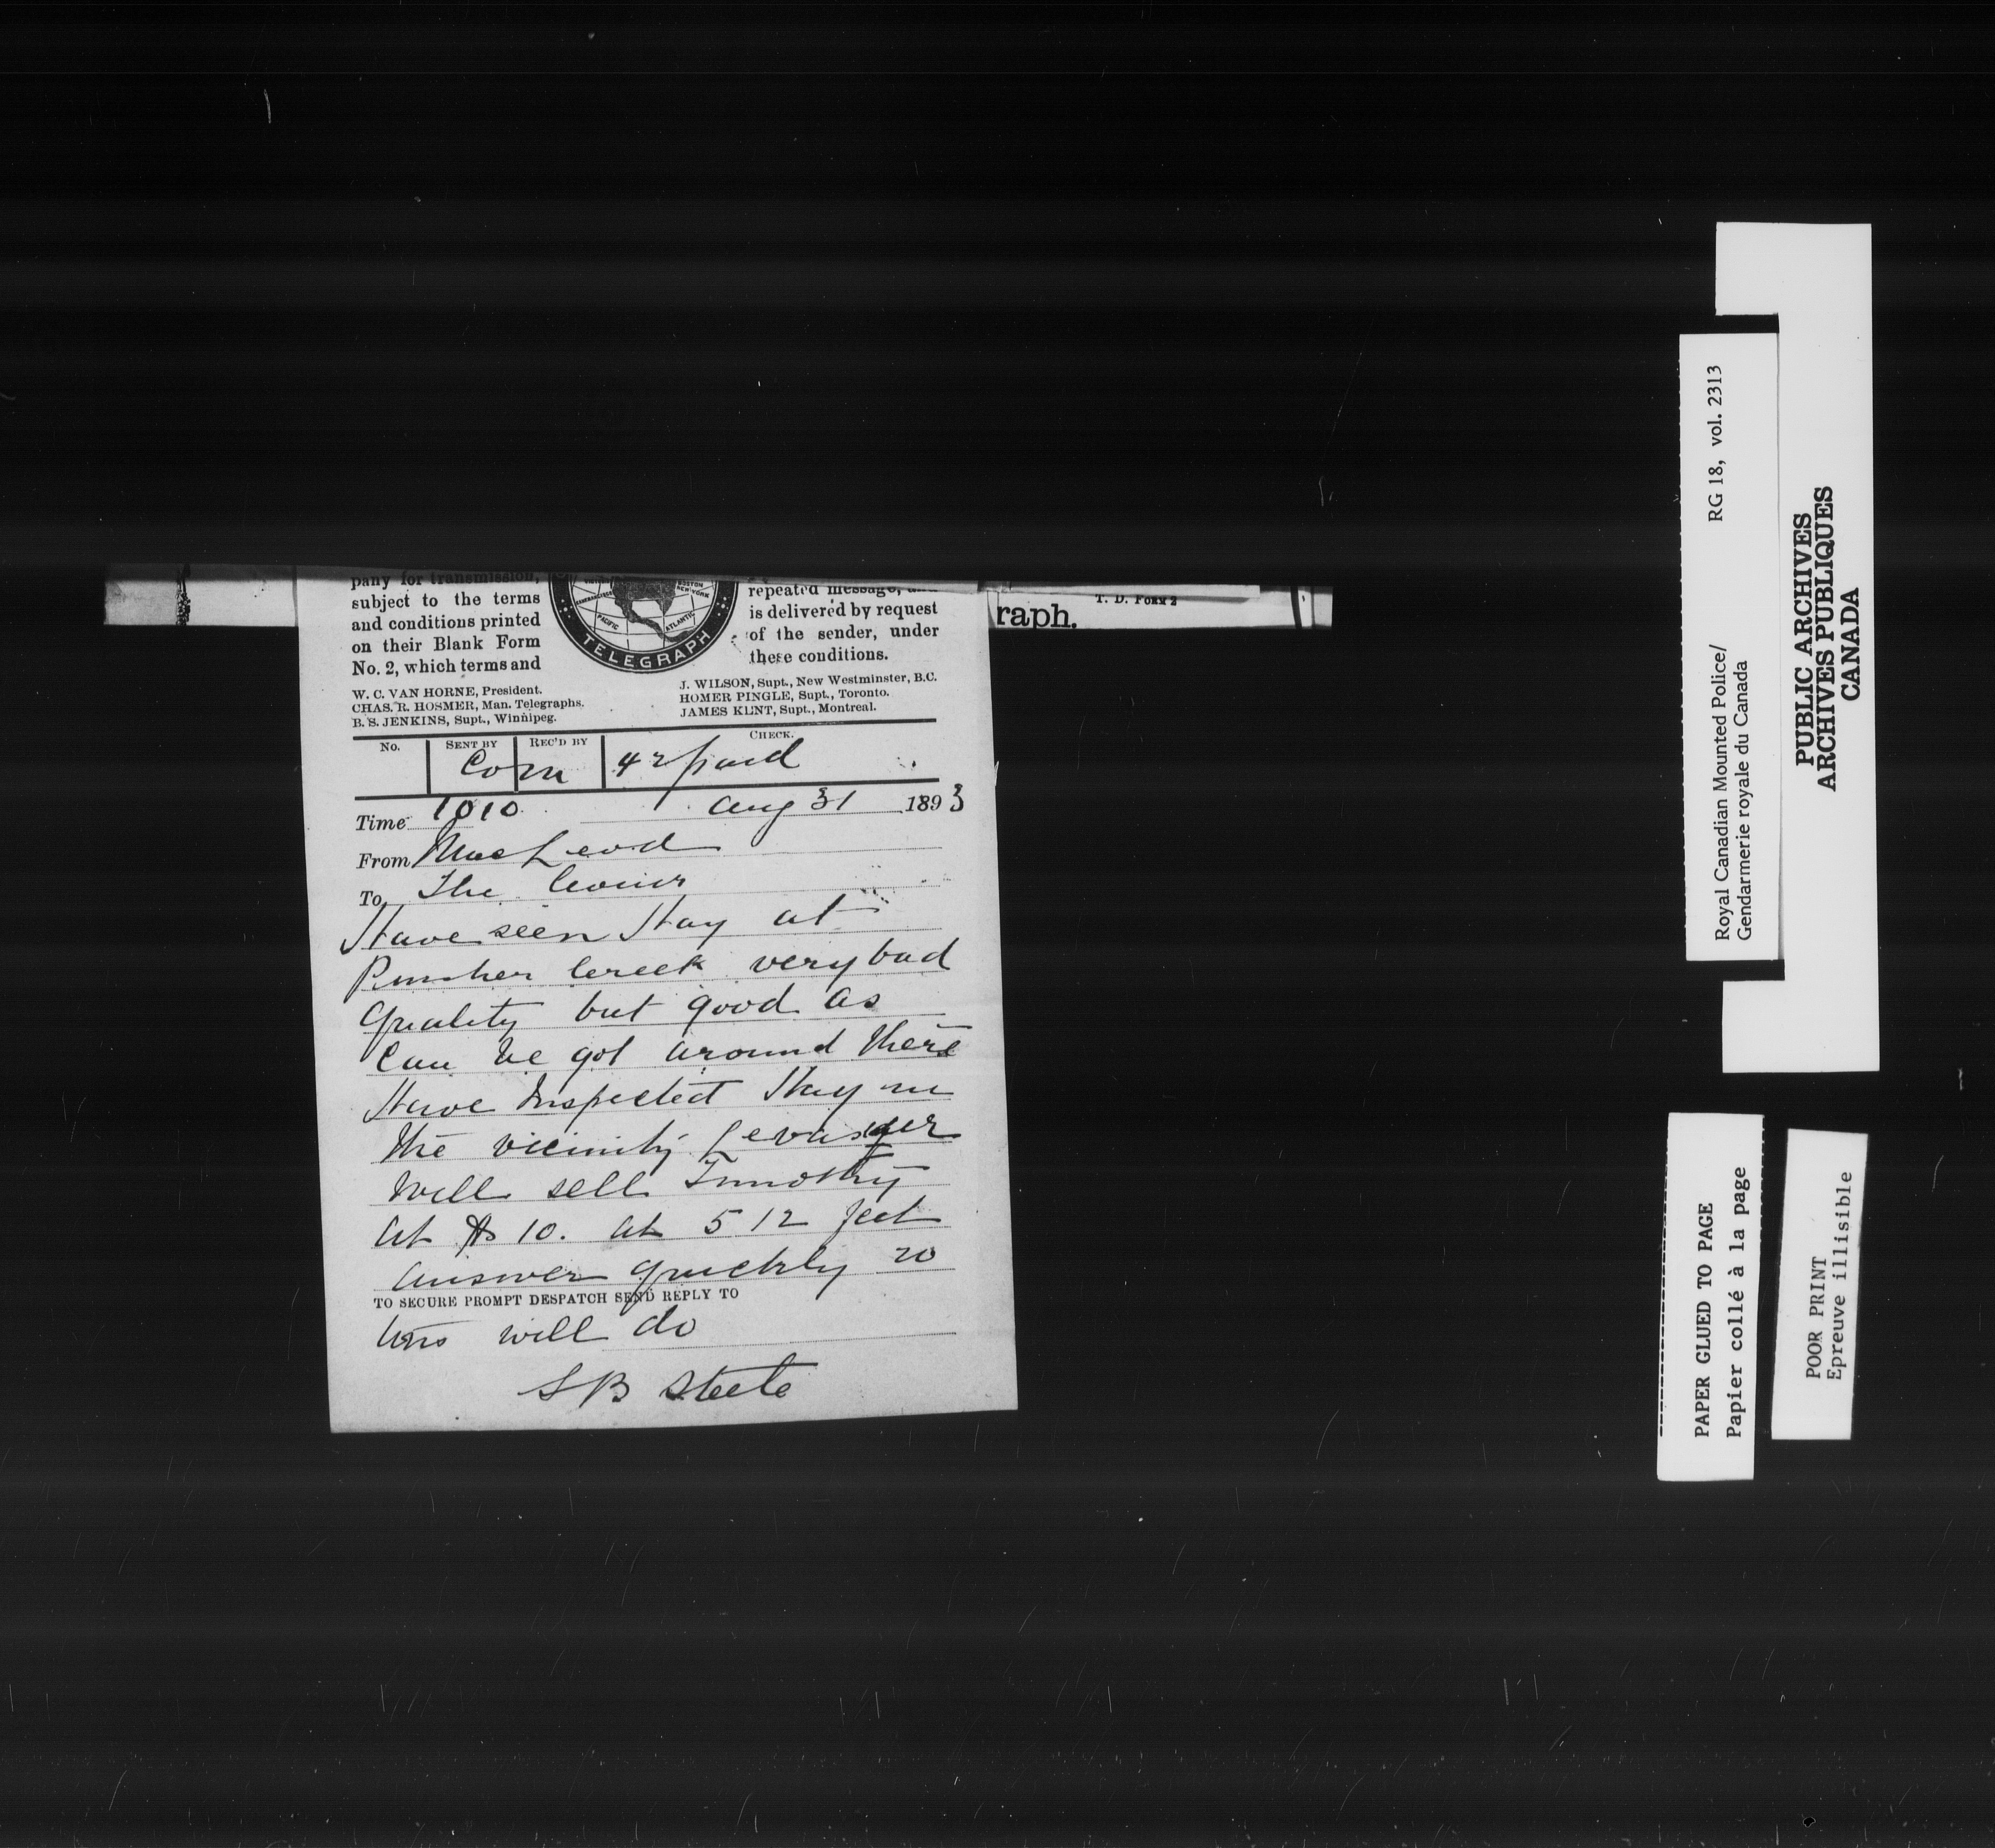 pany for transmission,
subject to the terms
and conditions printed
on their Blank Form
No. 2, which terms and
BOSTON
NEW YORK
PACIFIC
ATLANTIC
TELEGRAPH
repeated message,
is delivered by request
of the sender, under
these conditions.
T. D. Form 2
raph.
W. C. VAN HORNE, President.
CHAS. R. HOSMER, Man. Telegraphs.
B. S. JENKINS, Supt., Winnipeg.
J. WILSON, Supt., New Westminster, B.C.
HOMER PINGLE, Supt., Toronto.
JAMES KENT, Supt., Montreal.
No. SENT BY REC'D BY CHECK.
Co m 42 paid
Time 1010 Aug 31 1893
From MacLeod
To The Comr
Have seen Hay at
Pincher Creek very bad
quality but good as
can be got around there
Have Inspected Hay in
the vicinity Levasser
Will sell Timothy
at $10. at 512 feet
answer quickly 20
TO SECURE PROMPT DESPATCH SEND REPLY TO
tons will do
S B Steele
Royal Canadian Mounted Police/ RG 18, vol. 2313
Gendarmerie royale du Canada
PUBLIC ARCHIVES
ARCHIVES PUBLIQUES
CANADA
PAPER GLUED TO PAGE
Papier collé à la page
POOR PRINT
Epreuve illisible